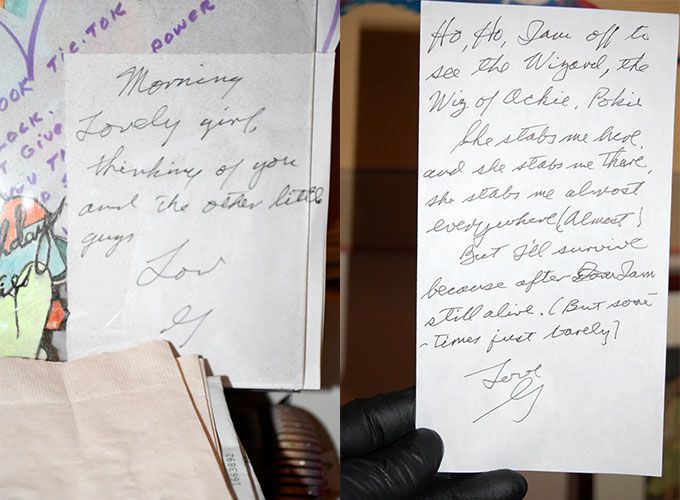 OOK TIC.TOK
POWER
OCK.
T GIVE
Morning
Lovely girl,
thinking of you
and the other little
guys
Love
G
1663892
Ho, Ho, I am off to
see the Wizard, the
Wiz of Ockie, Pokie
She stabs me here,
and she stabs me there,
she stabs me almost
everywhere (Almost)
But I'll survive
because after I am
still alive. (But some-
-times just barely)
Love
G